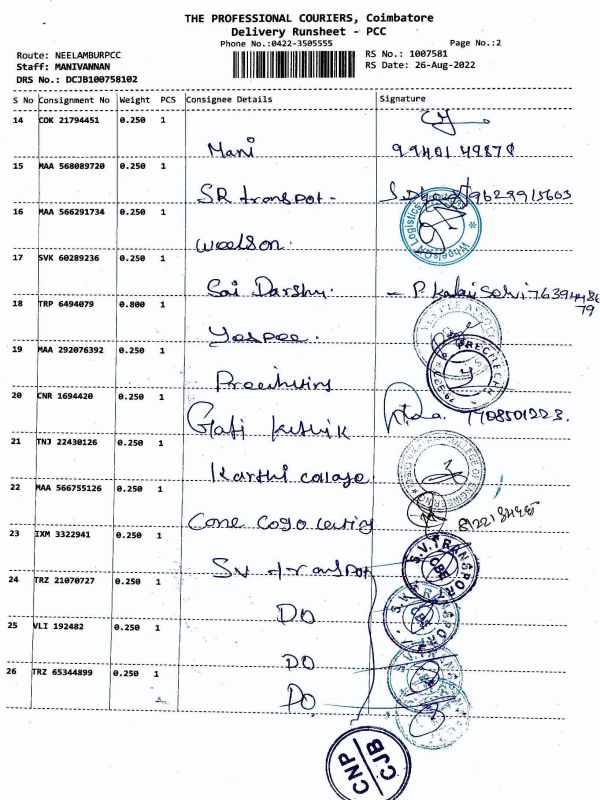 THE PROFESSIONAL COURIERS, Coimbatore
Delivery Runsheet - PCC
Phone No.:0422-3505555
Page No.:2
Route: NEELAMBURPCC
RS No.: 1007581
Staff: MANIVANNAN
RS Date: 26-Aug-2022
DRS No.: DCJB100758102
S No Consignment No Weight PCS Consignee Details Signature
14 COK 21794451 0.250 1
Mani
15 MAA 568089720 0.250 1
SR transpot - 9629915603
16 MAA 566291734 0.250 1
Weelson. WheelsON Logistics
17 SVK 60289236 0.250 1
Sai Darshy. - P. Kalai Selvi 7639448679
18 TRP 6494079 0.800 1
Yespee.
19 MAA 292076392 0.250 1
20 CNR 1694420 0.250 1
7708501223.
21 TNJ 22430126 0.250 1
Karthi collage COLLEGE OF ENGINEERING
22 MAA 566755126 0.250 1
23 IXM 3322941 0.250 1
S.V transpot S.V. TRANSPORT CBE
24 TRZ 21070727 0.250 1
DO
25 VLI 192482 0.250 1
DO
26 TRZ 65344899 0.250 1
DO
CNP
CJB